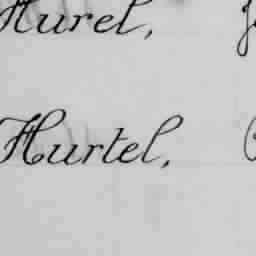 Hurel,
Hurtel,